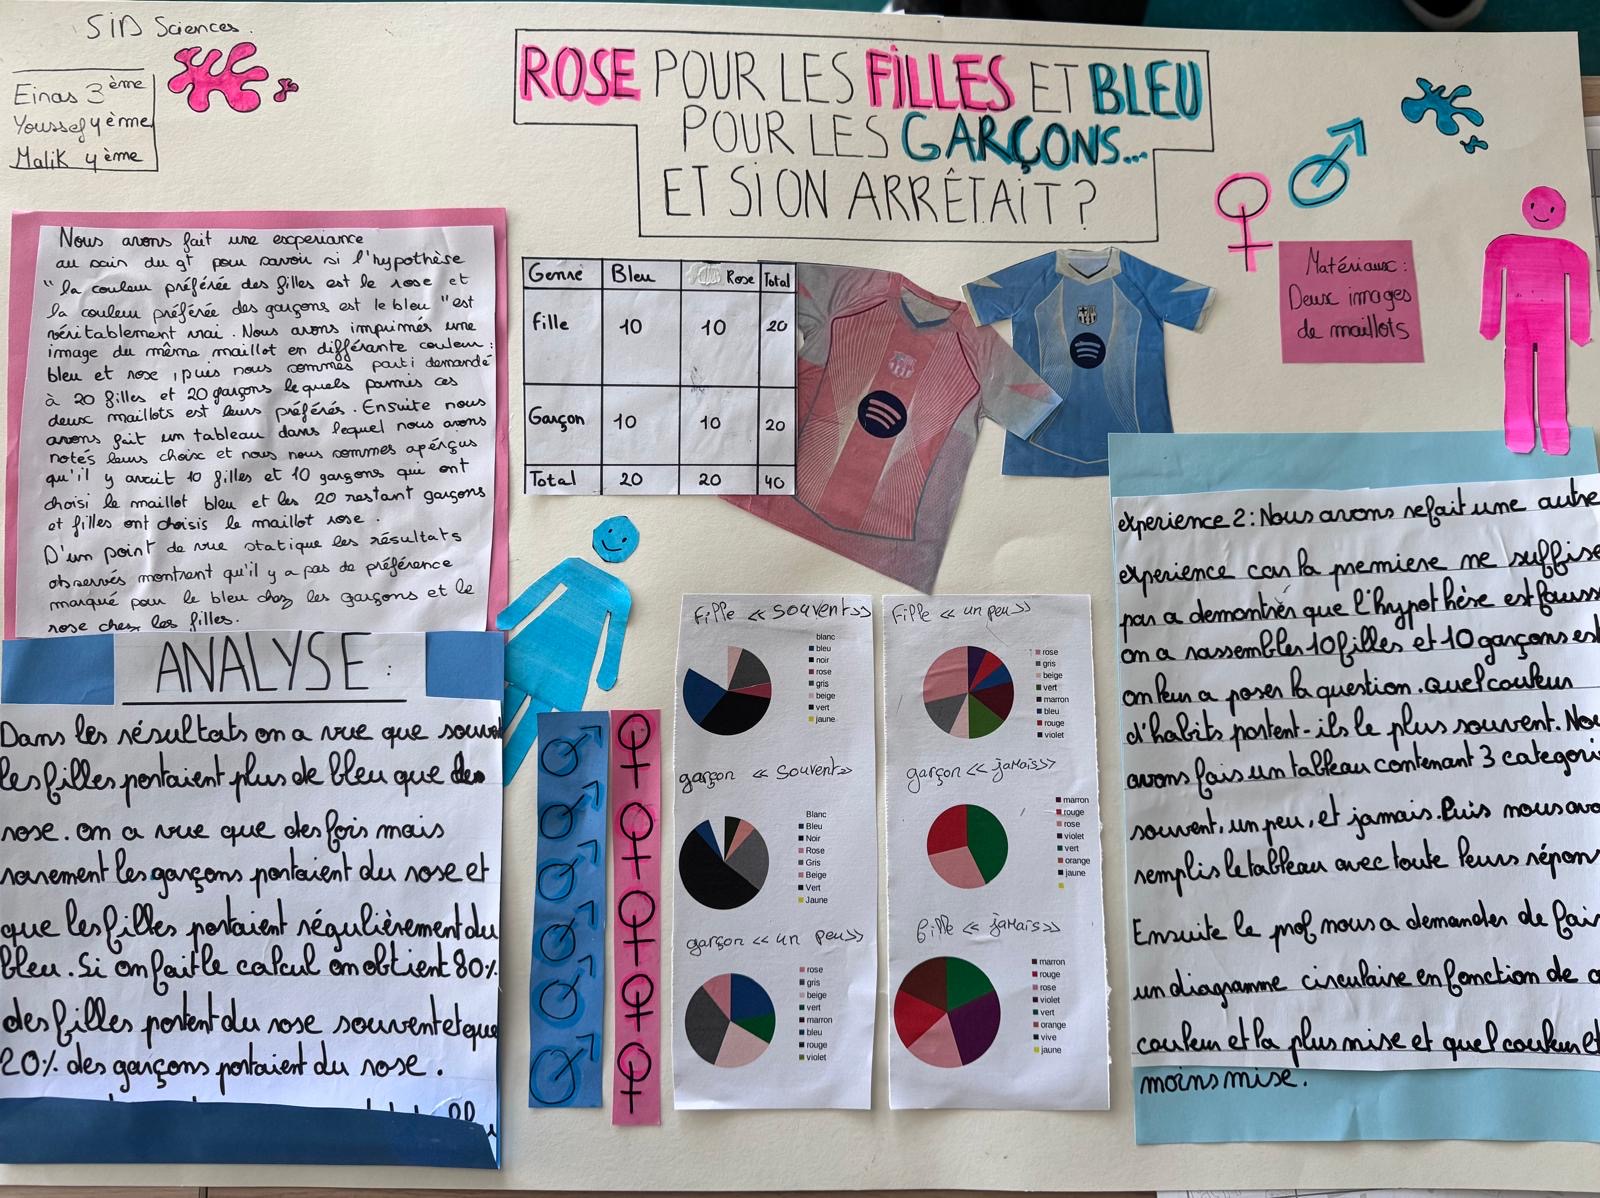 SID Sciences.
Einas 3ème
Youssef 4ème
Malik 4ème
ROSE POUR LES FILLES ET BLEU
POUR LES GARÇONS...
ET SI ON ARRÊTAIT ?
Nous avons fait une experiance
au sain du gt pour savoir si l'hypothèse
"la couleur préférée des filles est le rose et
la couleur préférée des garçons est le bleu" est
véritablement vrai. Nous avons imprimés une
image du même maillot en différante couleur :
bleu et rose, puis nous sommes parti demandé
à 20 filles et 20 garçons lequels parmis ces
deux maillots est leurs préférés. Ensuite nous
avons fait un tableau dans lequel nous avons
notés leurs choix et nous nous sommes apérçus
qu'il y avait 10 filles et 10 garçons qui ont
choisi le maillot bleu et les 20 restant garçons
et filles ont choisis le maillot rose.
D'un point de vue statique les résultats
observés montrent qu'il y a pas de préférence
marqué pour le bleu chez les garçons et le
rose chez les filles.
Genre Bleu Rose Total
Fille 10 10 20
Garçon 10 10 20
Total 20 20 40
Matériaux :
Deux images
de maillots
ANALYSE :
Dans les résultats on a vue que souvent
les filles portaient plus de bleu que de
rose. on a vue que des fois mais
rarement les garçons portaient du rose et
que les filles portaient régulièrement du
bleu. Si on fait le calcul on obtient 80%
des filles portent du rose souvent et que
20% des garçons portaient du rose.
Fille << souvent>>
blanc
bleu
noir
rose
gris
beige
vert
jaune
garçon << souvent>>
Blanc
Bleu
Noir
Rose
Gris
Beige
Vert
Jaune
garçon << un peu>>
rose
gris
beige
vert
marron
bleu
rouge
violet
Fille << un peu>>
rose
gris
beige
vert
marron
bleu
rouge
violet
garçon << jamais>>
marron
rouge
rose
violet
vert
orange
jaune
fille << jamais>>
marron
rouge
rose
violet
vert
orange
vive
jaune
experience 2: Nous avons refait une autre
experience car la premiere ne suffise
pas a demontrer que l'hypothèse est fauss
on a rassembler 10 filles et 10 garçons est
on leur a poser la question. Quel couleur
d'habits portent-ils le plus souvent. Nou
avons fais un tableau contenant 3 categori
souvent, un peu, et jamais. Puis nous avo
remplis le tableau avec toute leurs répon
Ensuite le prof nous a demander de fair
un diagramme circulaire en fonction de
couleur et la plus mise et quel couleur et
moins mise.